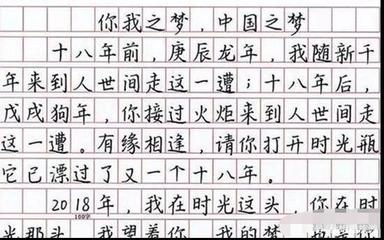 你我之梦，中国之梦
十八年前，庚辰龙年，我随新千
年来到人世间走这一遭；十八年后，
戊戌狗年，你接过火炬来到人世间走
这一遭。有缘相逢，请你打开时光瓶
它已漂过了又一个十八年。
2018年，我在时光这头，你在时
100字
光那头，我望着你，我的梦